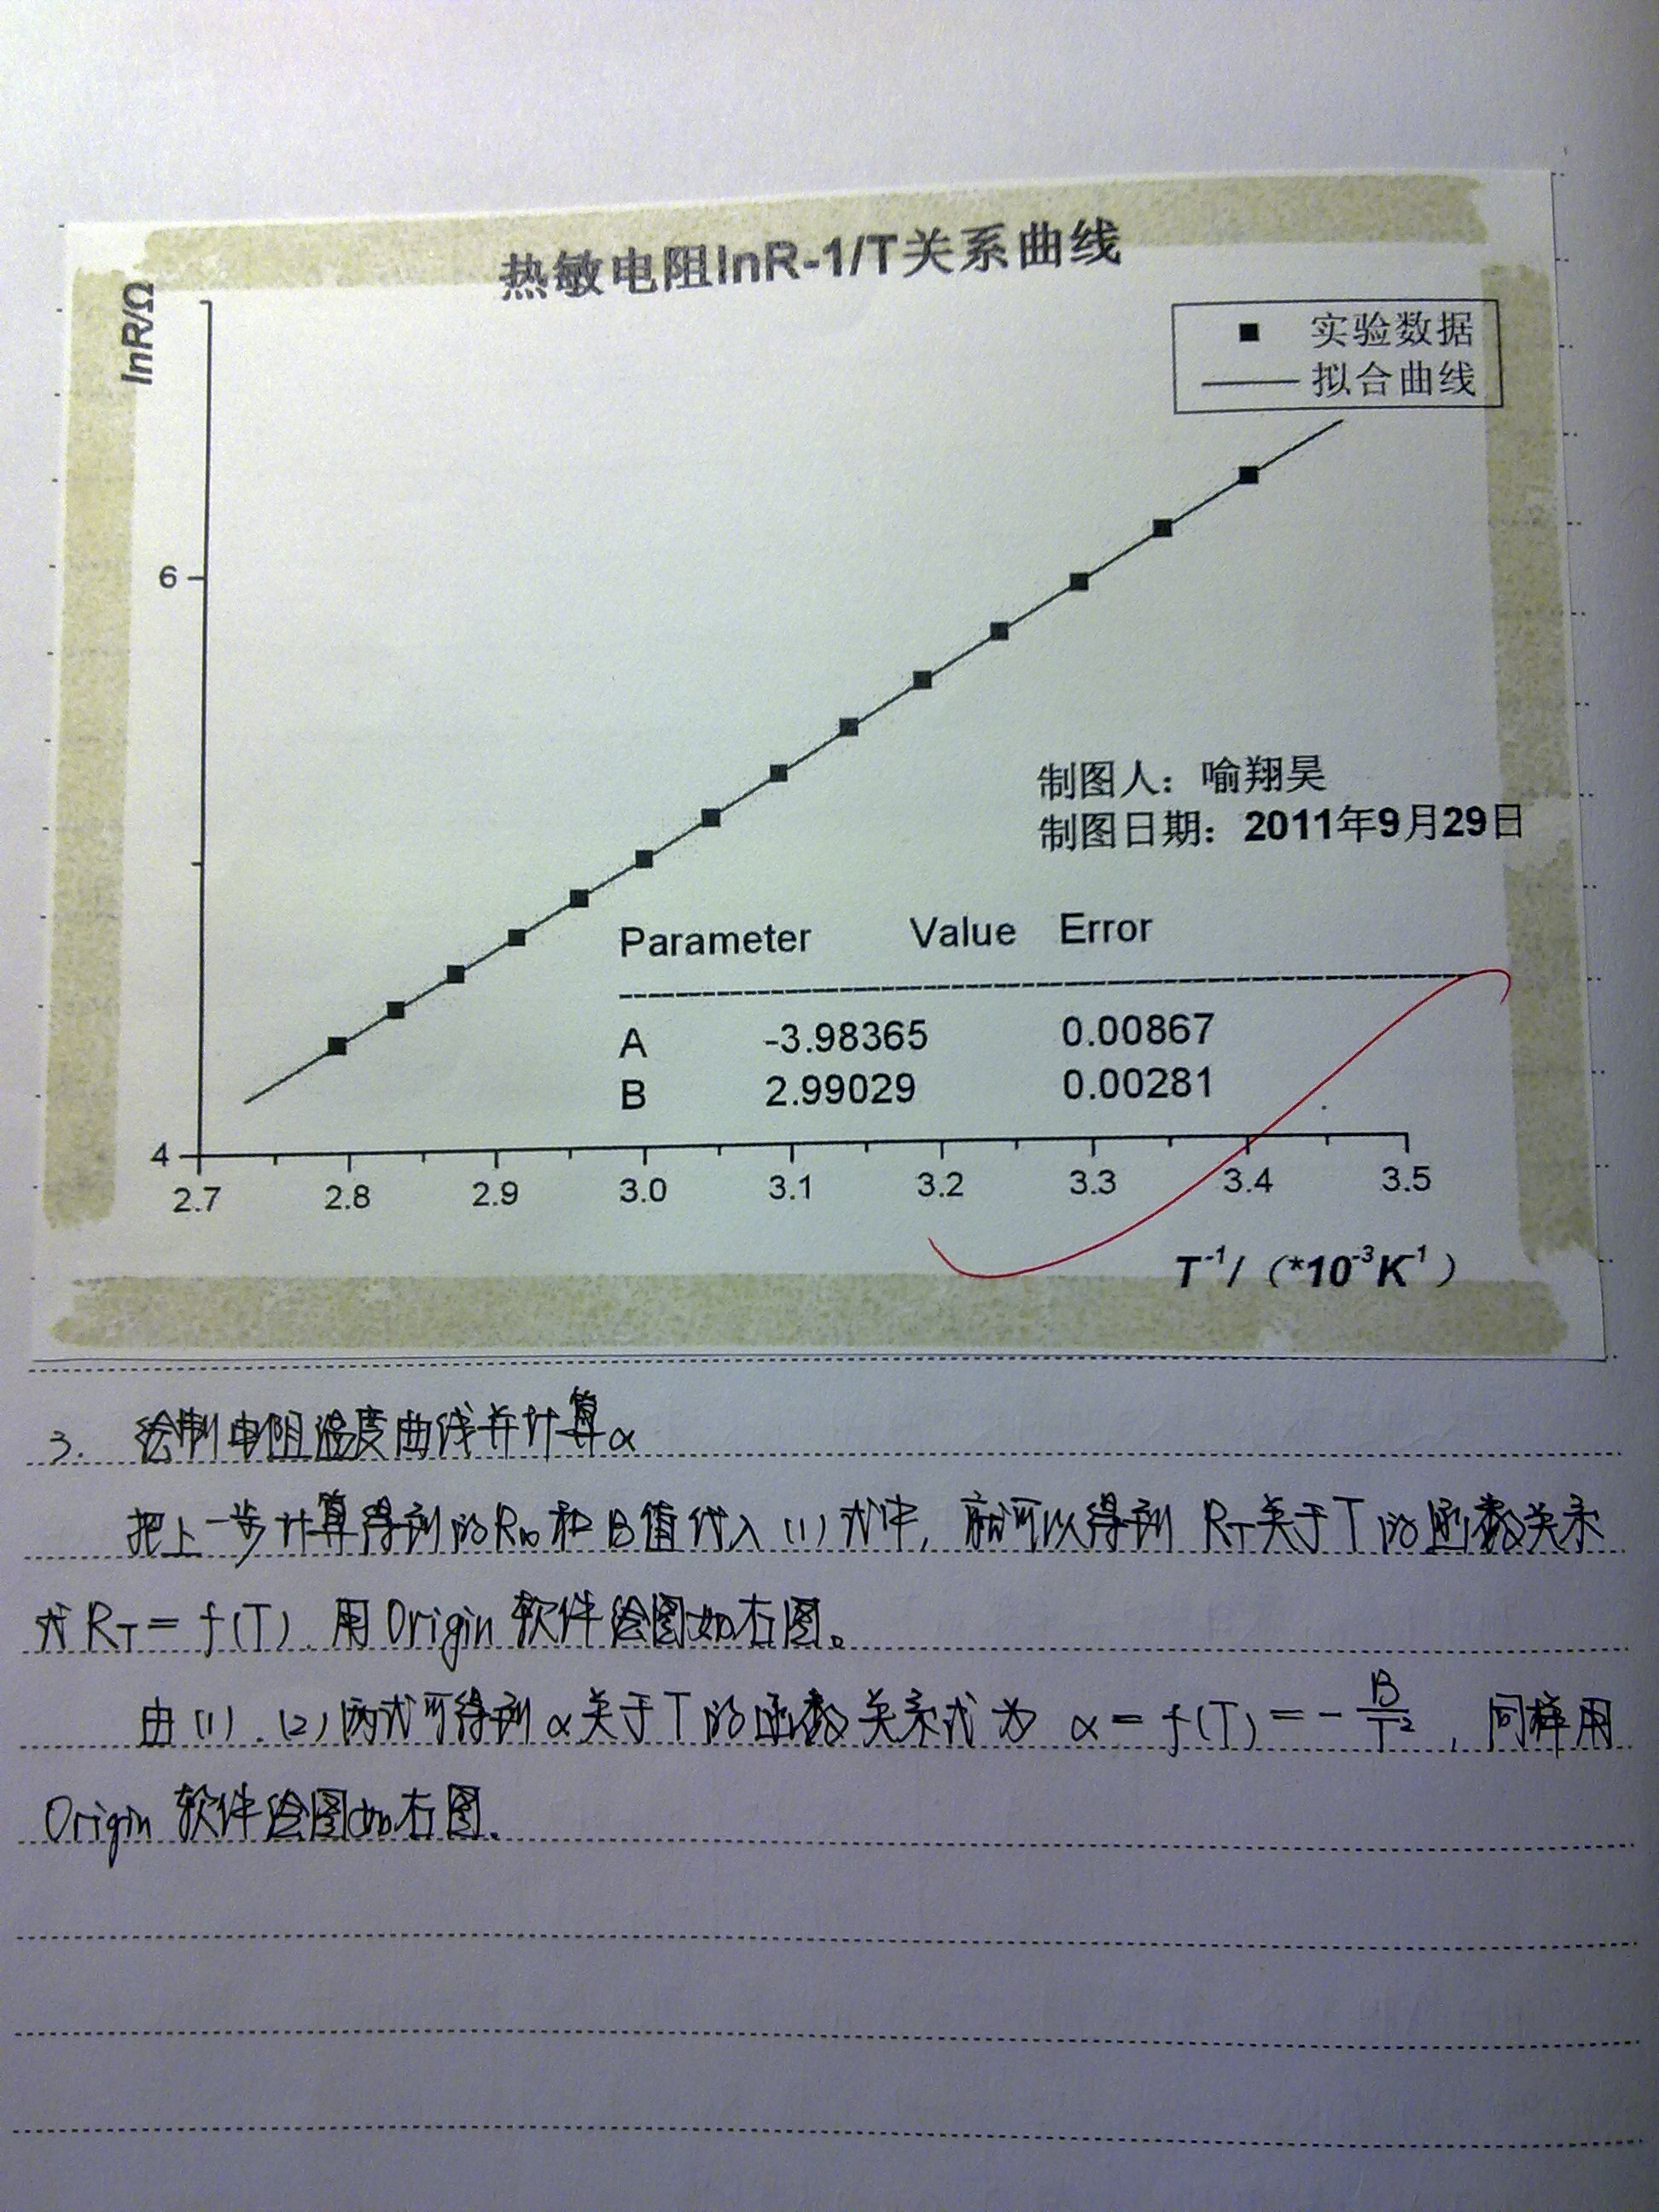 热敏电阻lnR-1/T关系曲线
lnR/Ω
实验数据
拟合曲线
6
制图人：喻翔昊
制图日期：2011年9月29日
Parameter Value Error
A -3.98365 0.00867
B 2.99029 0.00281
4
2.7 2.8 2.9 3.0 3.1 3.2 3.3 3.4 3.5
T⁻¹/（*10⁻³K⁻¹）
3. 绘制电阻温度曲线并计算α
把上一步计算得到的R∞和B值代入(1)式中，就可以得到 R_T关于T的函数关系
式R_T = f(T). 用Origin软件绘图如右图。
由(1).(2)两式可得到α关于T的函数关系式为 α = f(T) = -B/T², 同样用
Origin软件绘图如右图.